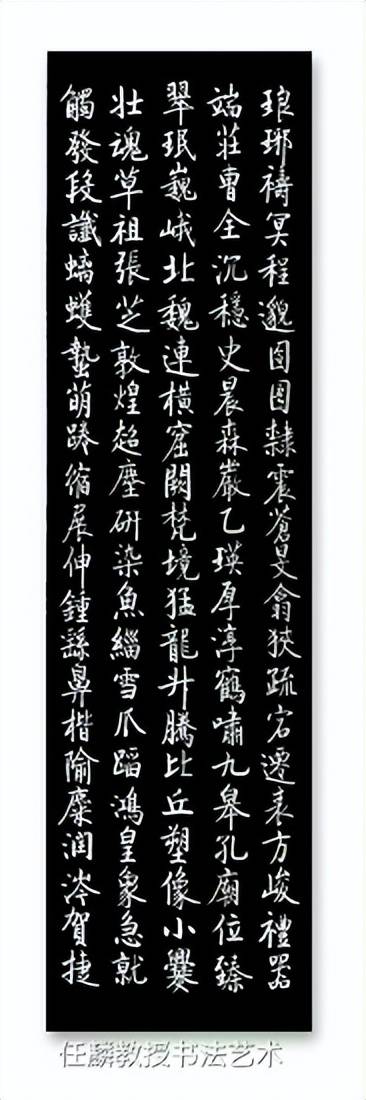 琅琊禱冥程邈囹圄隸震蒼旻翕狹疏宕遷表方峻禮器
端莊曹全沉穩史晨森嚴乙瑛厚淳鶴嘯九皋孔廟位臻
翠珉巍峨北魏連橫窟闕梵境猛龍升騰比丘塑像小爨
壯魂草祖張芝敦煌超塵研染魚緇雪爪蹈鴻皇象急就
觸發段讖螭蠖蟄萌跧縮展伸鍾繇鼻楷隃麋潤涔賀捷
任麟教授书法艺术